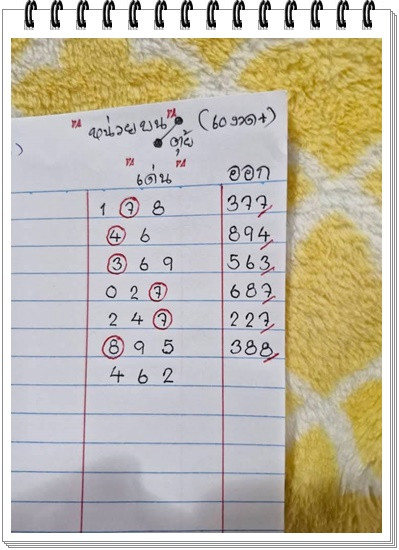 หน่วยบน (60 งวด+)
)
เด่น ออก
1 7 8 377
4 6 894
3 6 9 563
0 2 7 687
2 4 7 227
8 9 5 388
4 6 2